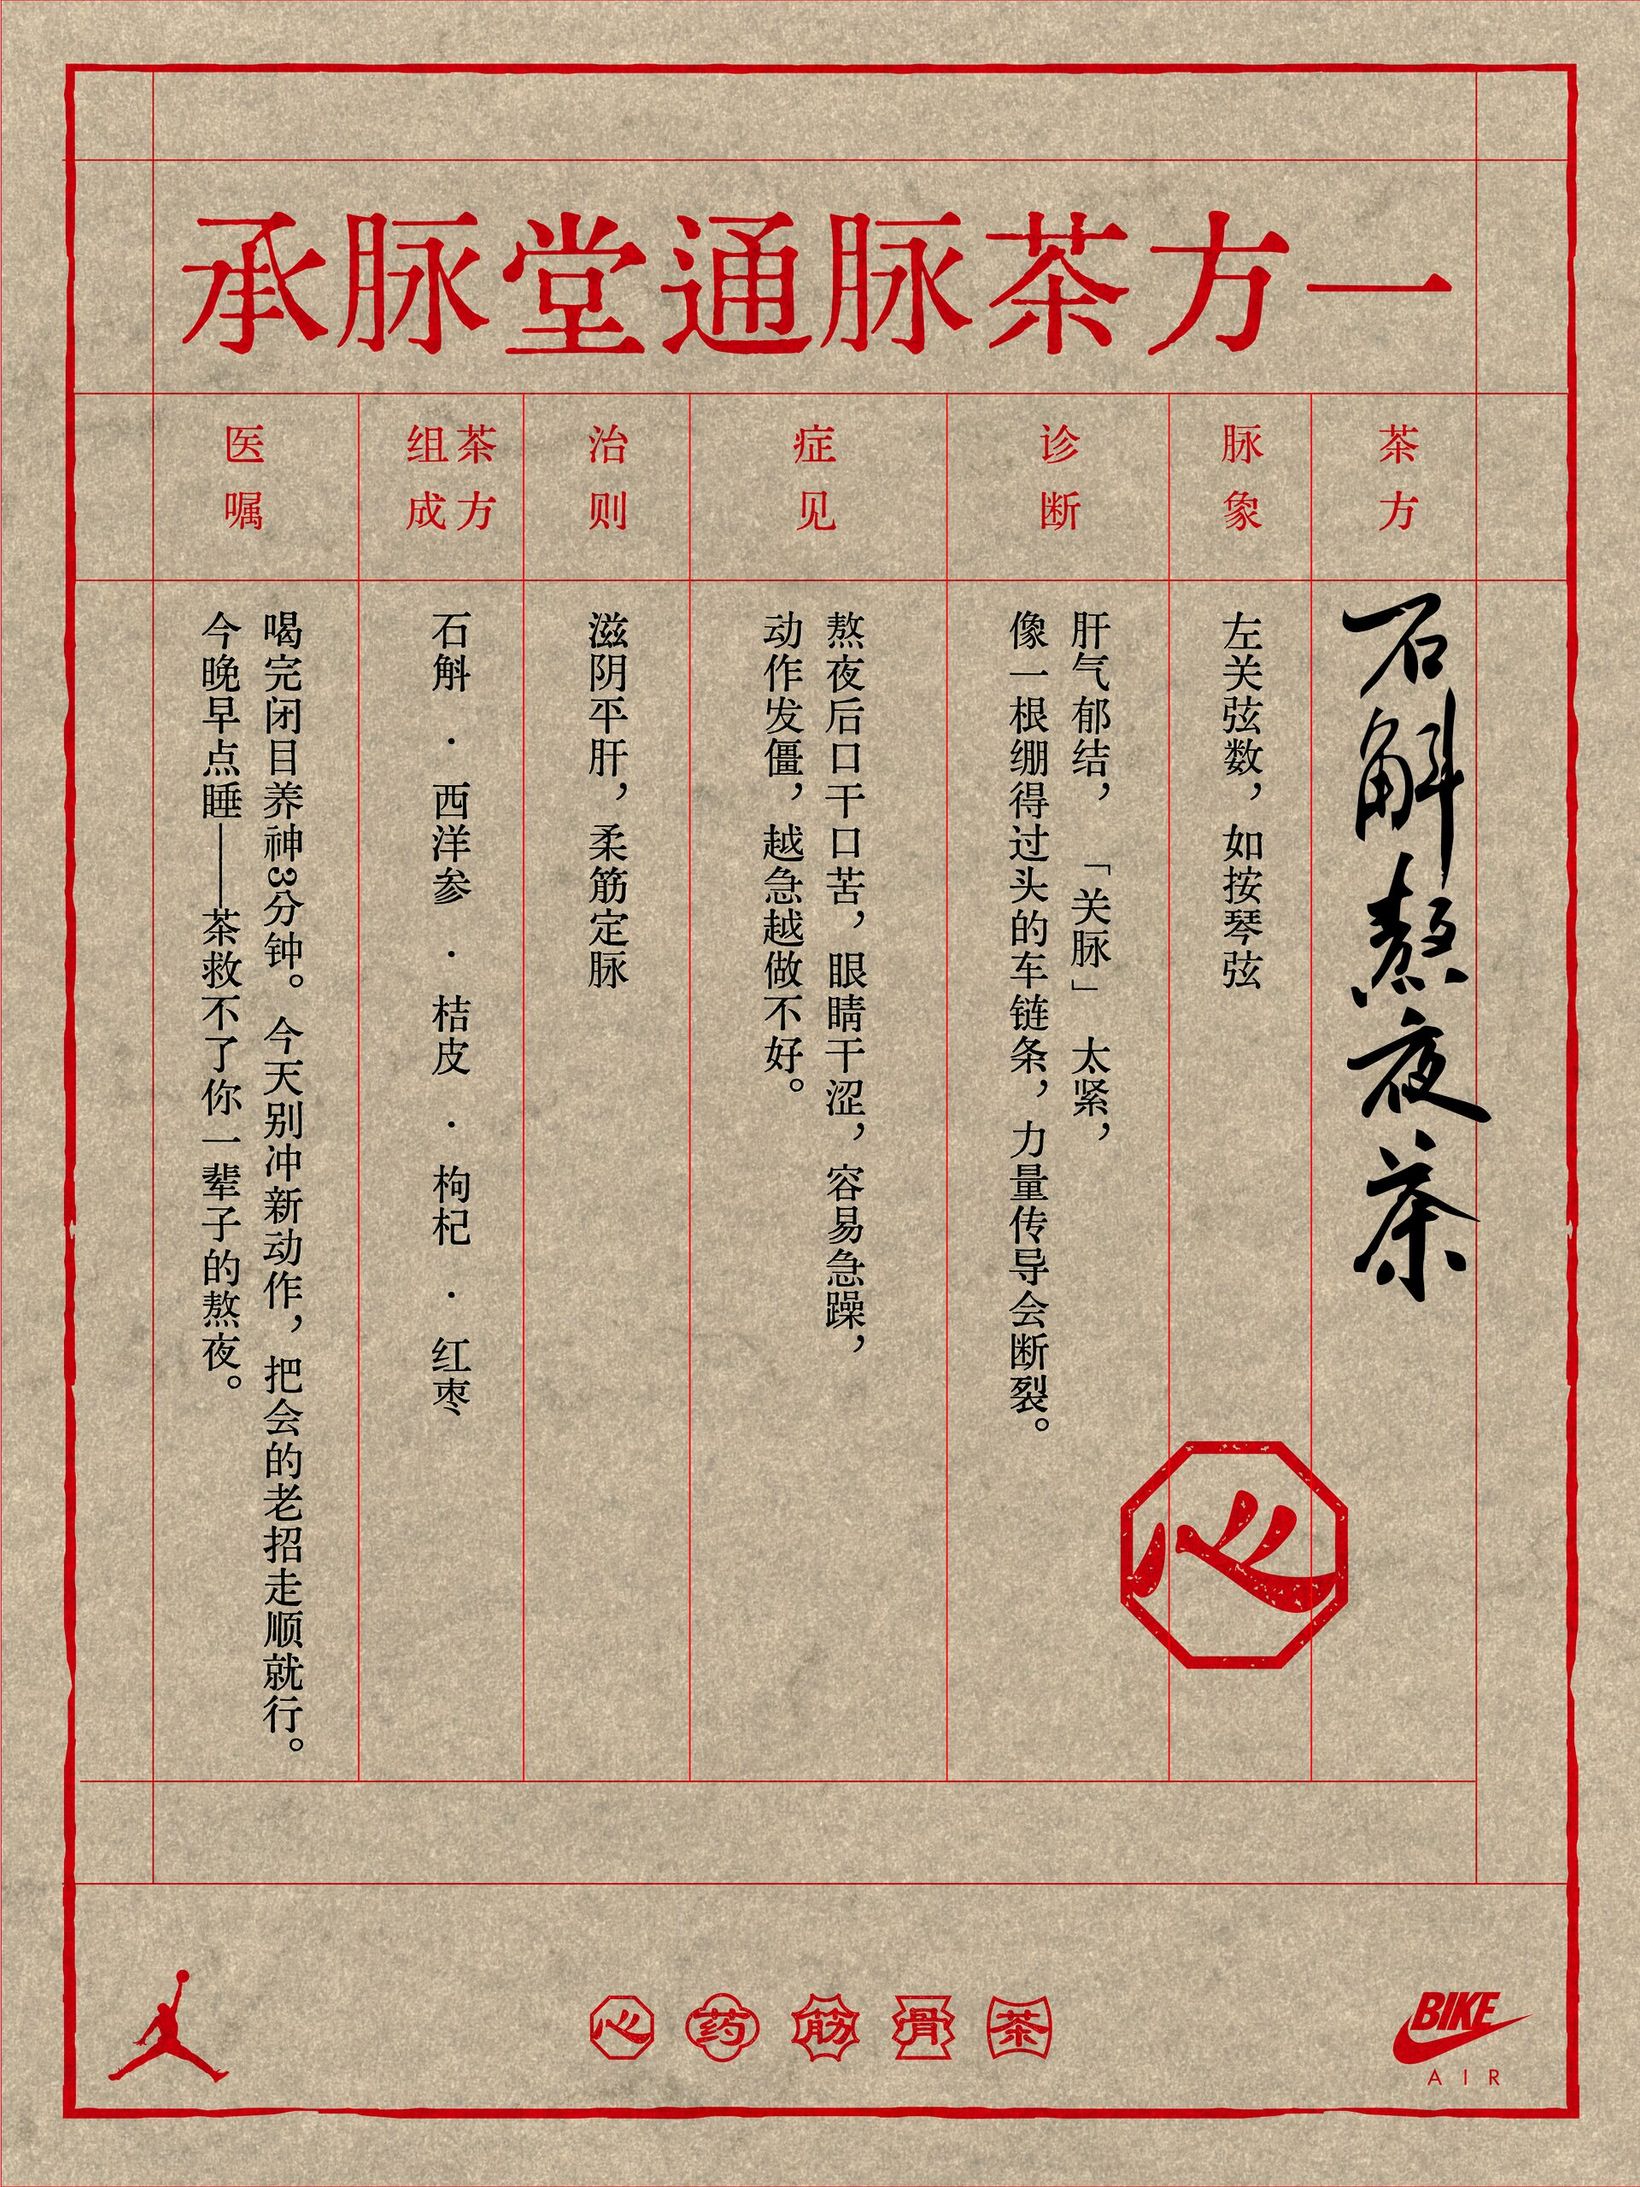 承脉堂通脉茶方一
茶方
石斛熬夜茶
脉象
左关弦数，如按琴弦
诊断
肝气郁结，「关脉」太紧，
像一根绷得过头的车链条，力量传导会断裂。
症见
熬夜后口干口苦，眼睛干涩，容易急躁，
动作发僵，越急越做不好。
治则
滋阴平肝，柔筋定脉
茶方
组成
石斛 · 西洋参 · 桔皮 · 枸杞 · 红枣
医嘱
喝完闭目养神3分钟。今天别冲新动作，把会的老招走顺就行。
今晚早点睡——茶救不了你一辈子的熬夜。
心
心 药 筋 骨 茶
BIKE
AIR